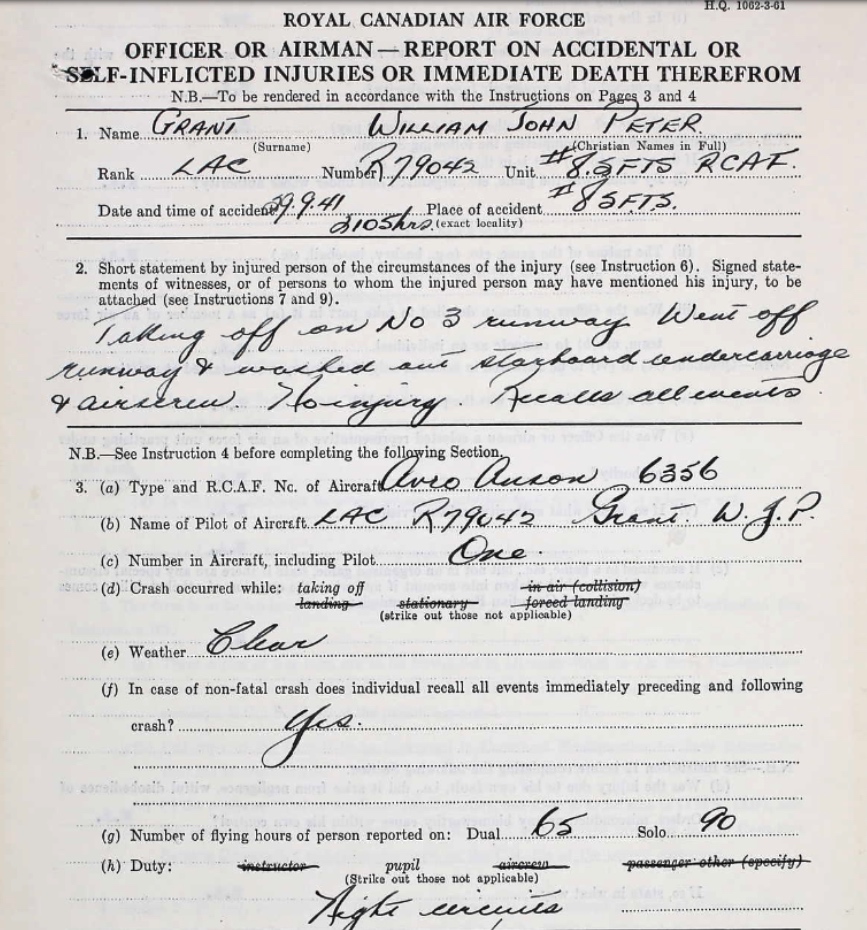 H.Q. 1062-3-61
ROYAL CANADIAN AIR FORCE
OFFICER OR AIRMAN—REPORT ON ACCIDENTAL OR
SELF-INFLICTED INJURIES OR IMMEDIATE DEATH THEREFROM
N.B.—To be rendered in accordance with the Instructions on Pages 3 and 4
1. Name GRANT WILLIAM JOHN PETER.
(Surname) (Christian Names in Full)
Rank LAC Number R79042 Unit #8.SFTS RCAF.
Date and time of accident 9.9.41 Place of accident #8 SFTS.
2105hrs. (exact locality)
2. Short statement by injured person of the circumstances of the injury (see Instruction 6). Signed state-
ments of witnesses, or of persons to whom the injured person may have mentioned his injury, to be
attached (see Instructions 7 and 9).
Taking off on No 3 runway. Went off
runway & washed out starboard undercarriage
& airscrew. No injury. Recalls all events
N.B.—See Instruction 4 before completing the following Section.
3. (a) Type and R.C.A.F. No. of Aircraft Avro Anson 6356
(b) Name of Pilot of Aircraft LAC R79042 Grant. W.J.P.
(c) Number in Aircraft, including Pilot One.
(d) Crash occurred while: taking off in air (collision)
landing stationary forced landing
(strike out those not applicable)
(e) Weather Clear
(f) In case of non-fatal crash does individual recall all events immediately preceding and following
crash? Yes.
(g) Number of flying hours of person reported on: Dual 65 Solo 90
(h) Duty: instructor pupil aircrew passenger other (specify)
(Strike out those not applicable)
Night circuits